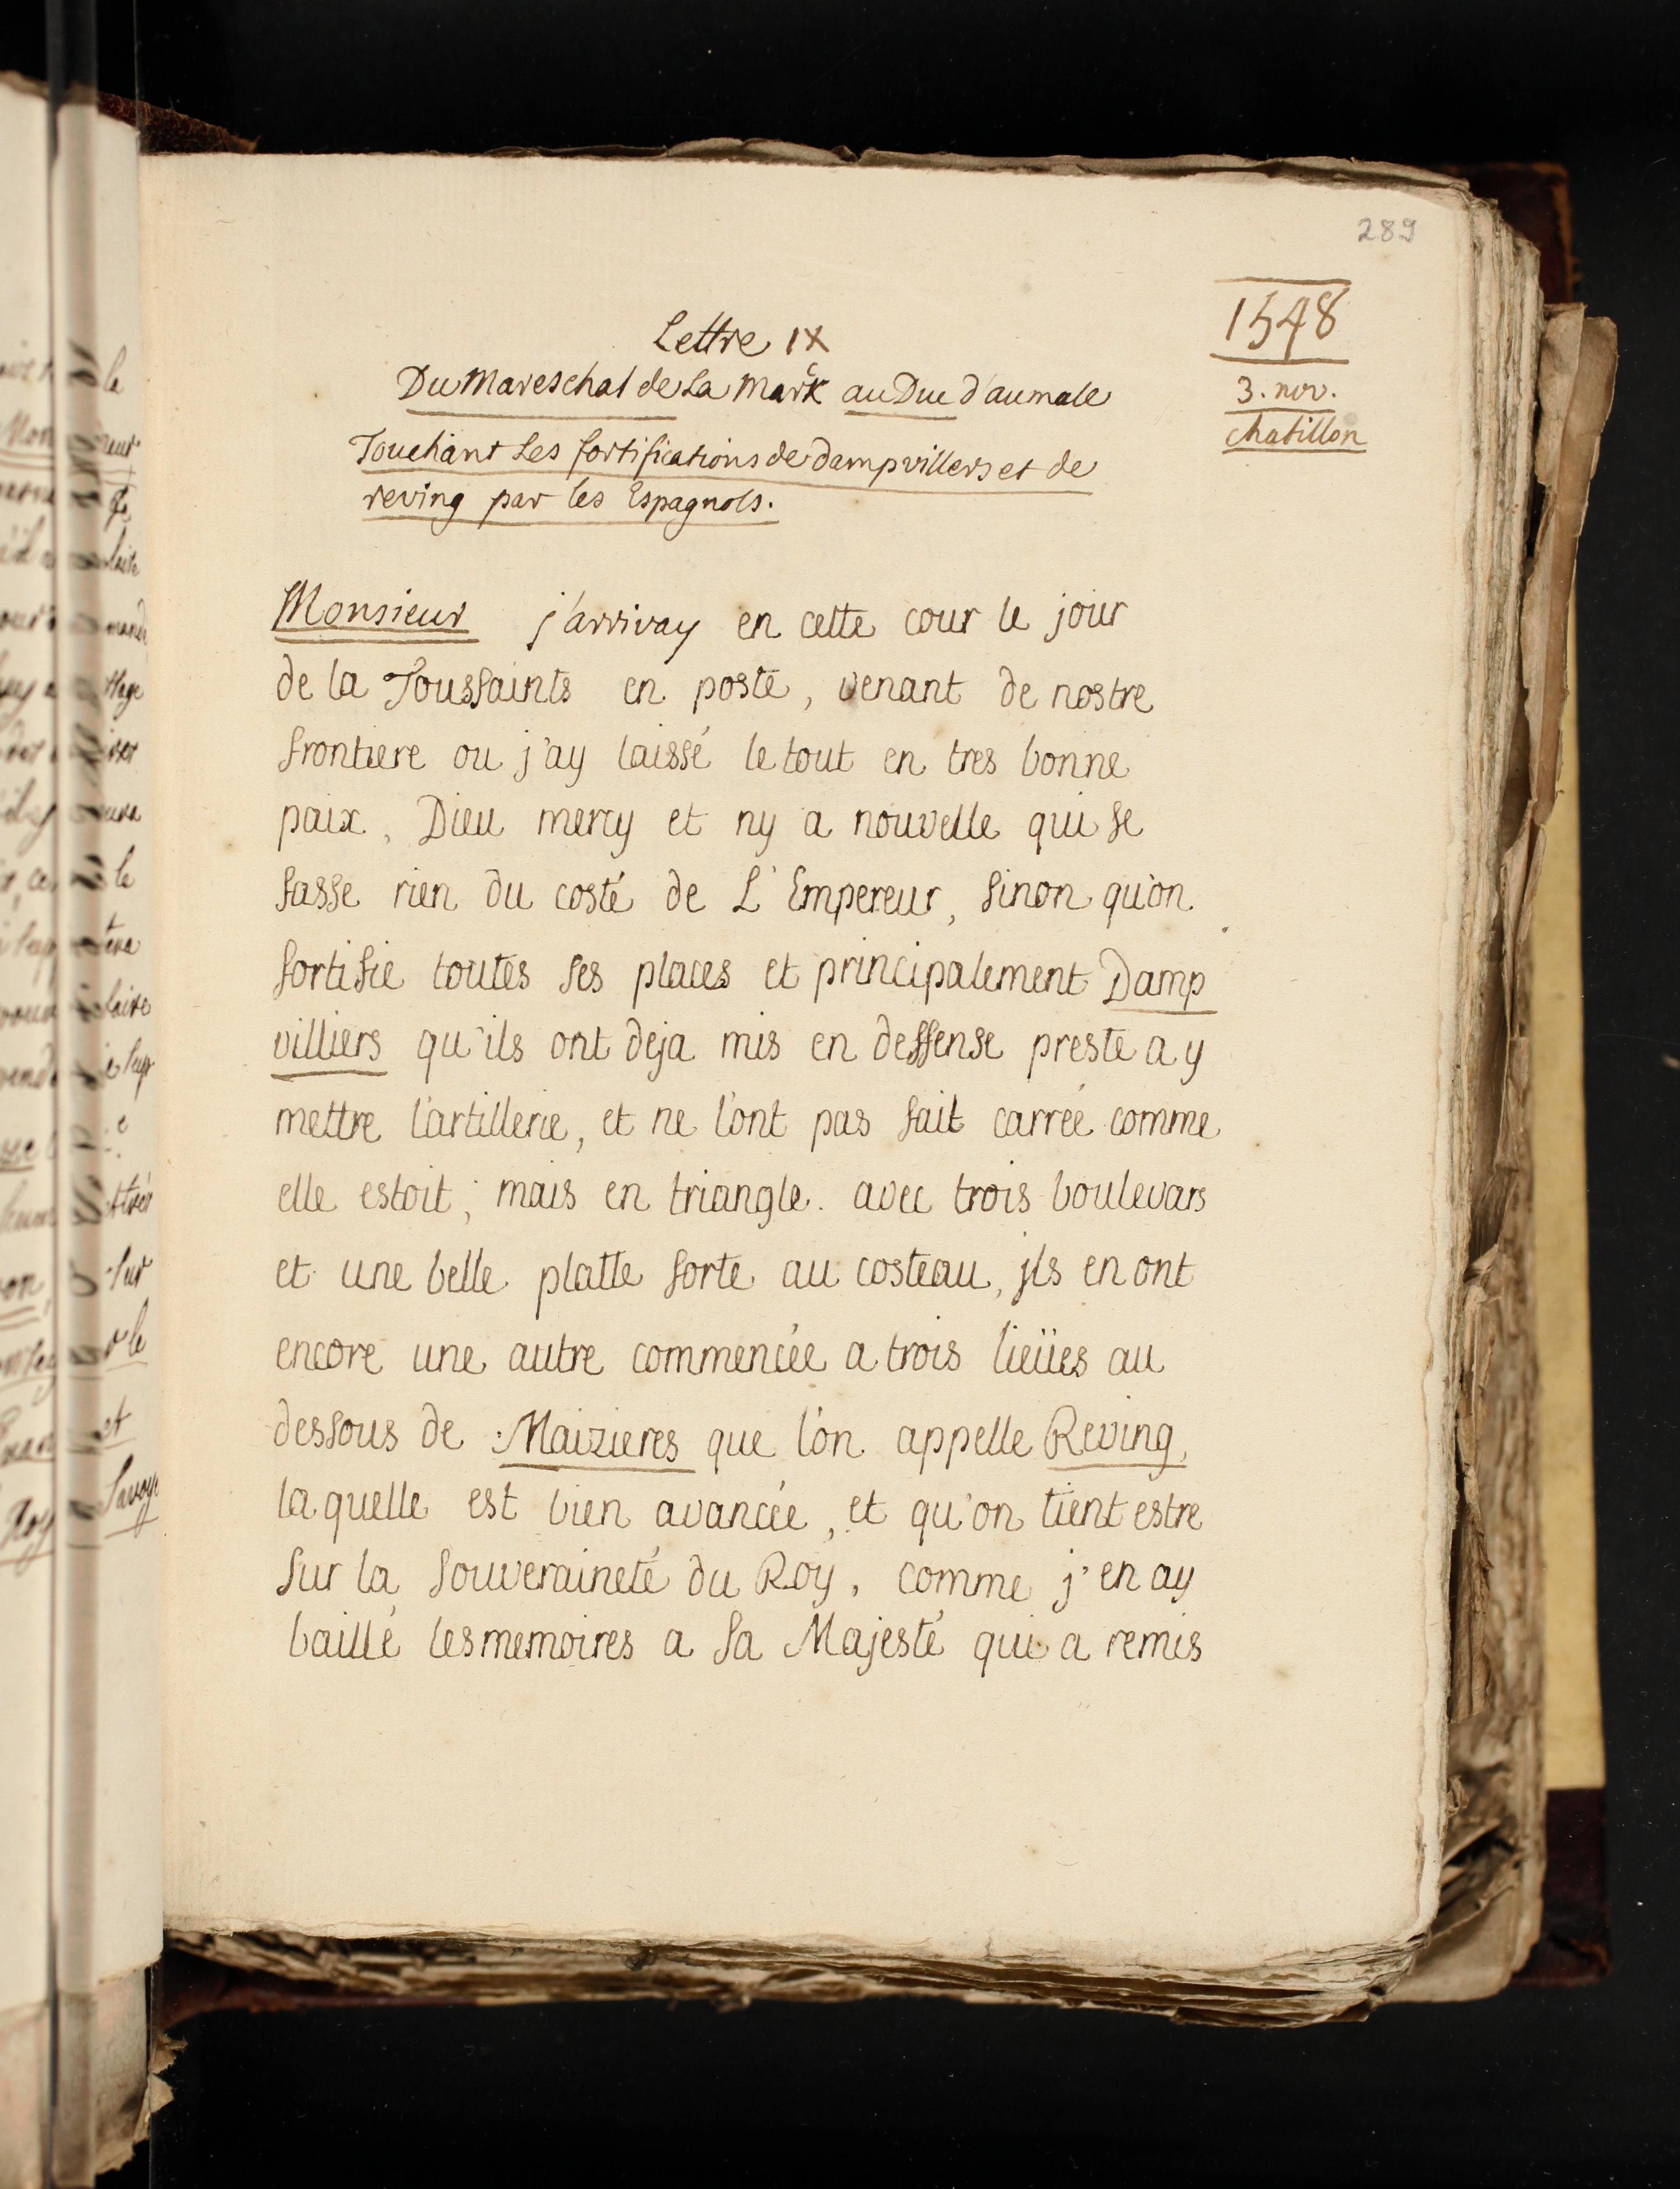 289
1548
3. nov.
chatillon
Lettre IX
Du Mareschal de La Marck au Duc d'aumale
Touchant Les fortifications de dampvillers et de
reving par les Espagnols.
Monsieur j'arrivay en cette cour le jour
de la Toussaints en poste, venant de nostre
frontiere ou j'ay laissé le tout en tres bonne
paix, Dieu mercy et ny a nouvelle qui se
fasse rien du costé de L'Empereur, sinon qu'on
fortifie toutes ses places et principalement Damp
villiers qu'ils ont deja mis en deffense preste a y
mettre l'artillerie, et ne l'ont pas fait carrée comme
elle estoit; mais en triangle. avec trois boulevars
et une belle platte forte au costeau, jls en ont
encore une autre commencée a trois lieües au
dessous de Maizieres que l'on appelle Reving,
la quelle est bien avancée, et qu'on tient estre
sur la souveraineté du Roy, comme j'en ay
baillé les memoires a sa Majesté qui a remis